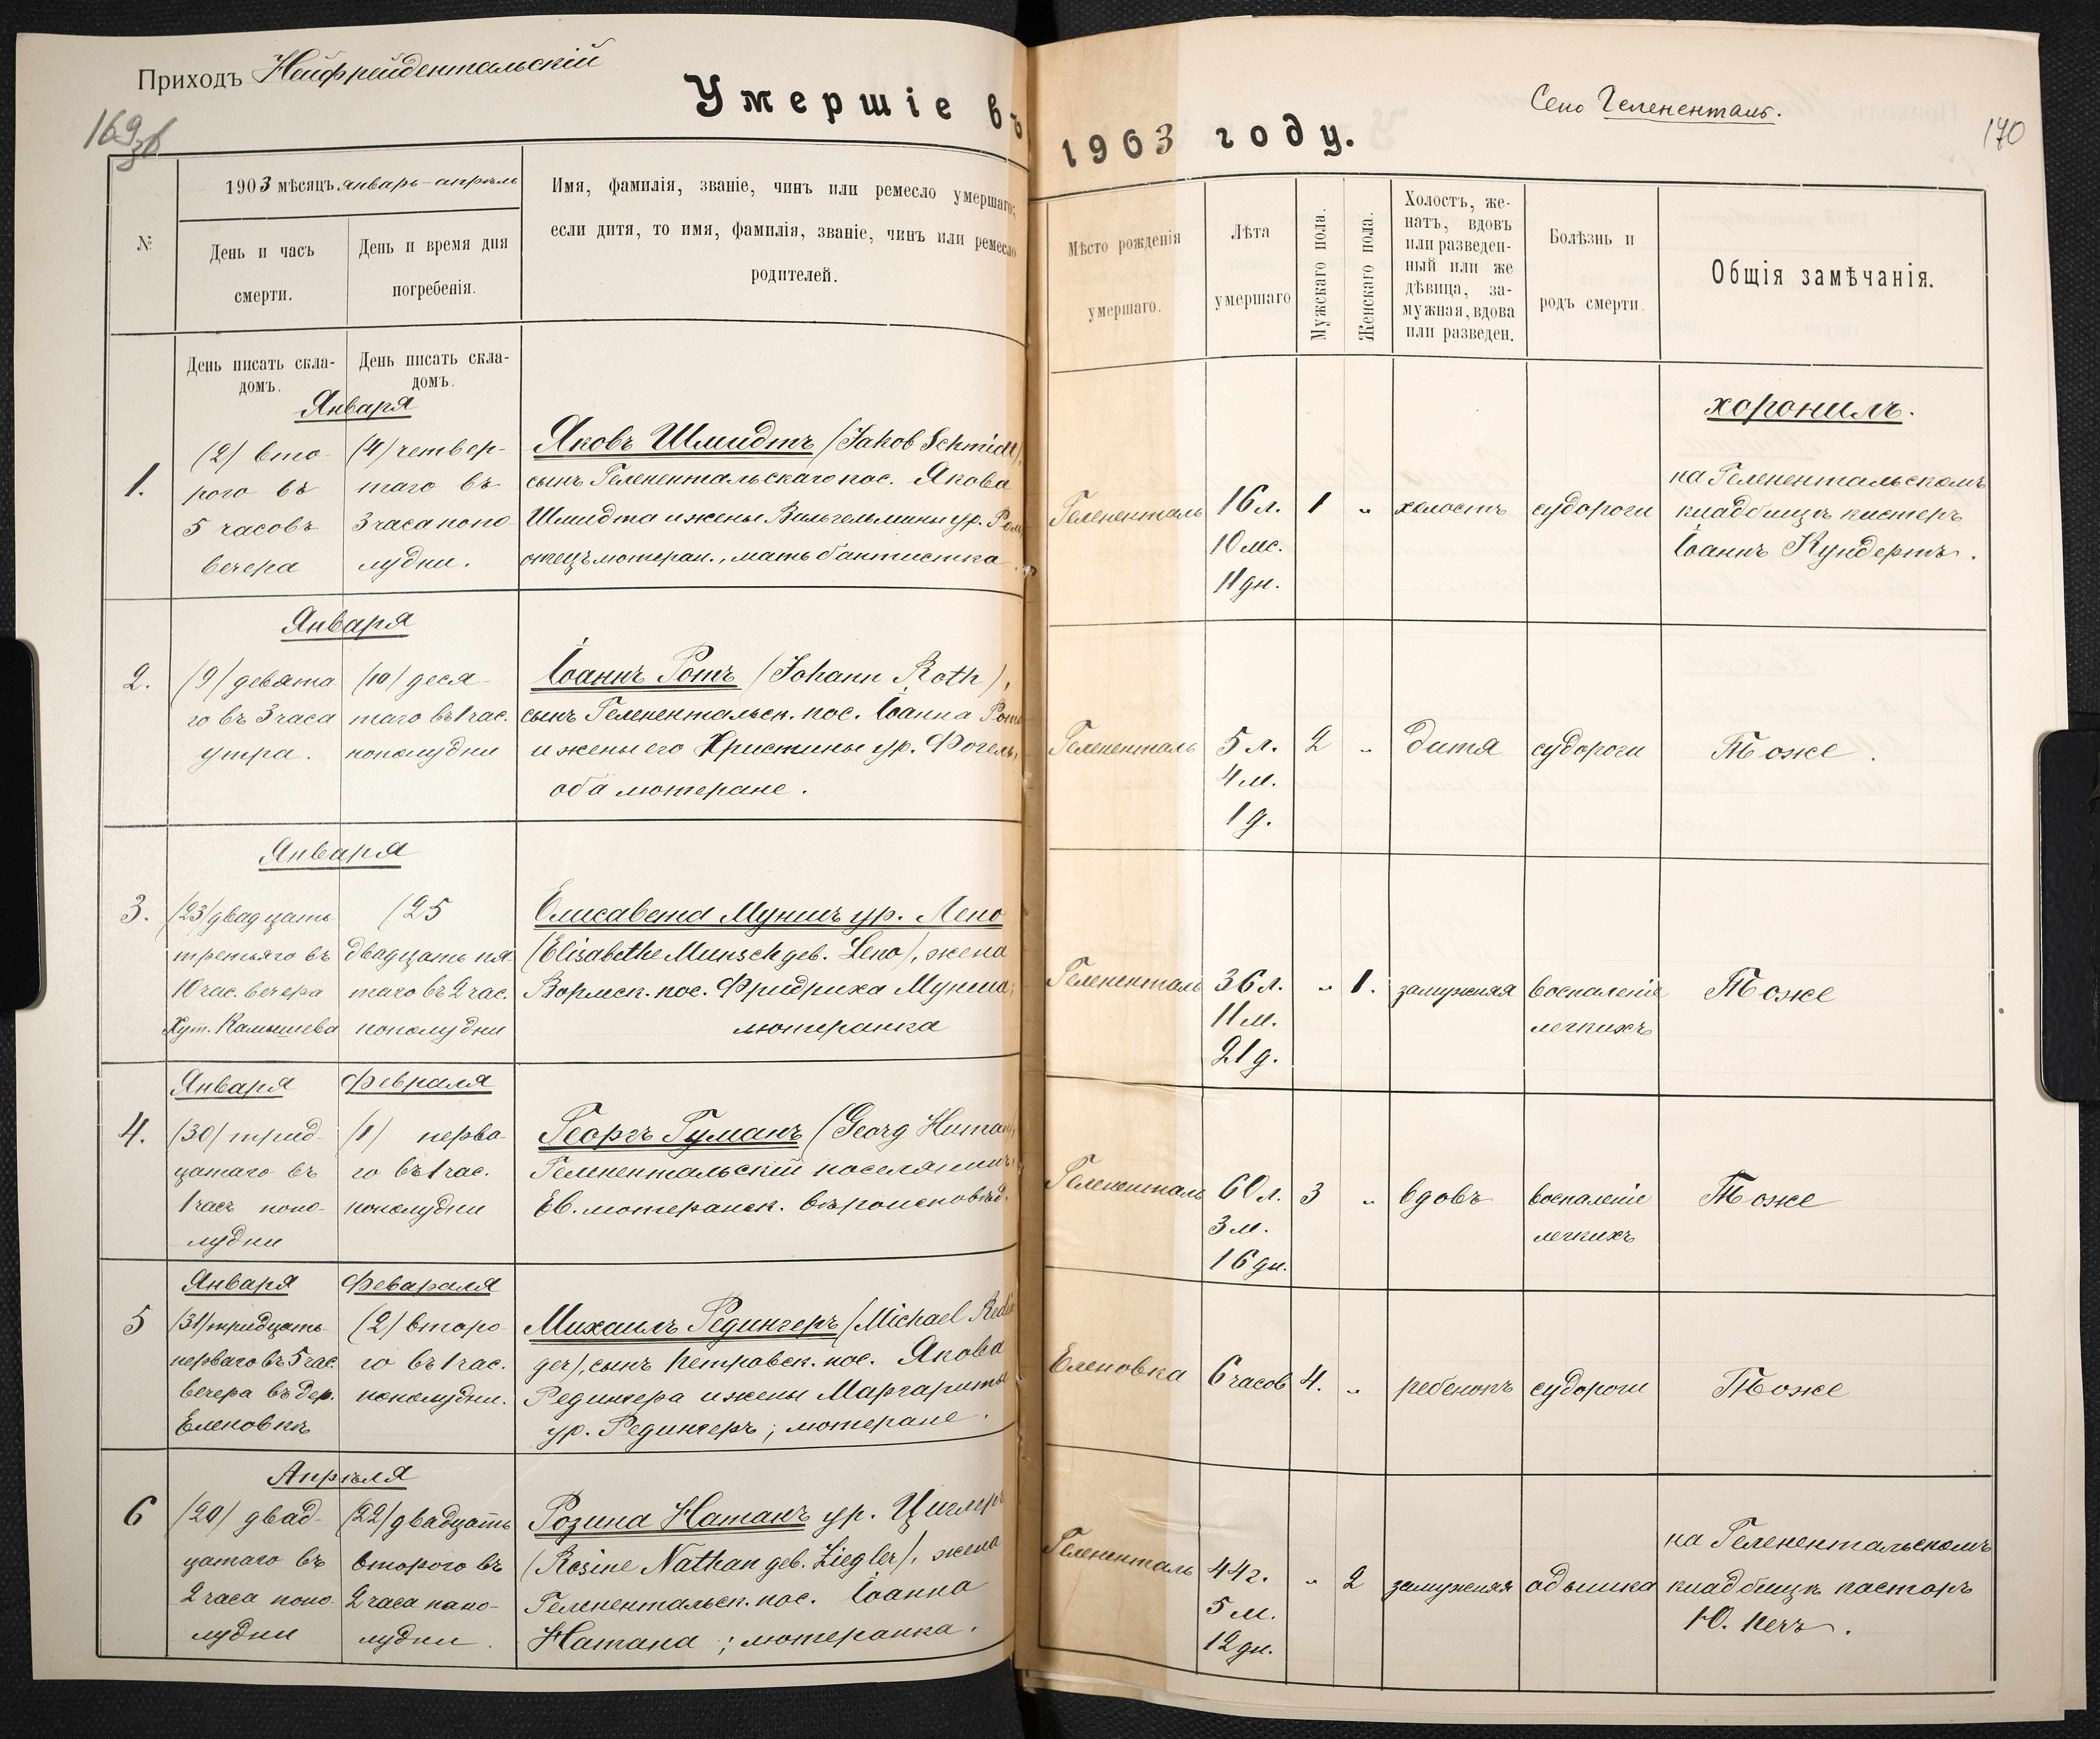 Приходъ Нейфрейдентальскій
169 об
Умершіе въ
№
1903 мѣсяцъ январь – апрѣль
День и часъ
смерти.
День и время дня
погребенія.
Имя, фамилія, званіе, чинъ или ремесло умершаго;
если дитя, то имя, фамилія, званіе, чинъ или ремесло
родителей.
День писать скла-
домъ.
День писать скла-
домъ.
Января
1.
(2) вто-
рого въ
5 часовъ
вечера
(4) четвер-
таго въ
3 часа попо-
лудни.
Яковъ Шмидтъ (Jakob Schmidt),
сынъ Гелененталъскаго пос. Якова
Шмидта и жены Вильгельмины ур.
отецъ лютеран., мать баптистка.
Января
2.
(9) девята-
го въ 3 часа
утра.
(10) деся-
таго въ 1 час.
пополудни
Іоаннъ Ротъ (Johann Roth),
сынъ Гелененталъск. пос. Іоанна Рота
и жены его Христины ур. Фогель,
оба лютеране.
Января
3.
(23) двадцать
третьяго въ
10 час. вечера
Хут. Камышева
(25
двадцать пя-
таго въ 2 час.
пополудни
Елисавета Муншъ ур. Лепо
(Elisabethe Munsch geb. Lepo), жена
Вормск. пос. Фридриха Мунша;
лютеранка
Января
Февраля
4.
(30) трид-
цатаго въ
1 часъ попо-
лудни
(1) перва-
го въ 1 час.
пополудни
Георгъ Гуманъ (Georg Human),
Гелененталъскій поселянинъ,
Ев. лютеранск. вѣроисповѣд.
Января
Февараля
5
(31) тридцать
перваго въ 5 час.
вечера въ дер.
Еленовкѣ
(2) второ-
го въ 1 час.
пополудни.
Михаилъ Редингеръ (Michael Redin-
ger), сынъ Петровск. пос. Якова
Редингера и жены Маргариты
ур. Редингеръ; лютеране.
Апрѣля
6
(20) двад-
цатаго въ
2 часа попо-
лудни
(22) двадцать
второго въ
2 часа попо-
лудни.
Розина Натанъ ур. Циглеръ
(Rosine Nathan geb. Ziegler), жена
Гелененталъск. пос. Іоанна
Натана; лютеранка.
1903 году.
Село Гелененталь.
170
Мѣсто рожденія
умершаго.
Лѣта
умершаго
Мужскаго пола.
Женскаго пола.
Холостъ, же-
натъ, вдовъ
или разведен-
ный или же
дѣвица, за-
мужная, вдова
или разведен.
Болѣзнь и
родъ смерти.
Общія замѣчанія.
хоронилъ.
Гелененталь
16 л.
10 мс.
11 дн.
1
"
холостъ
судороги
на Гелененталъскомъ
кладбищѣ кистеръ
Іоаннъ Кундертъ.
Гелененталь
5 л.
4 м.
1 д.
2
"
дитя
судороги
Тоже.
Гелененталь
36 л.
11 м.
21 д.
"
1.
замужняя
воспаленіе
легкихъ
Тоже
Гелененталь
60 л.
3 м.
16 дн.
3
"
вдовъ
воспаленіе
легкихъ
Тоже
Еленовка
6 часов
4.
"
ребенокъ
судороги
Тоже
Гелененталь
44 г.
5 м.
12 дн.
"
2
замужняя
одышка
на Гелененталъскомъ
кладбищѣ пасторъ
Ю. Печъ.